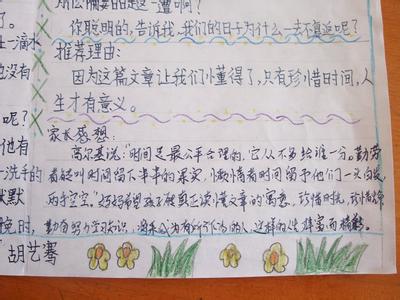 么偏要的是这一遭啊？
你聪明的，告诉我，我们的日子为什么一去不复返呢？
推荐理由：
因为这篇文章让我们懂得了，只有珍惜时间，人
生才有意义。
家长感想：
高尔基说："时间是最公平合理的，它从不多给谁一分。勤劳
者能叫时间留下串串的果实，懒惰者时间留予他们一头白发，
两手空空。"好好希望孩子能真正读懂文章的寓意，珍惜时光，珍惜生命
勤奋努力学习知识，将来成为有所作为的人，这样的人生丰富而精彩。
了。
上一滴水
也没有
呢？
他有
一洗手的
默默
晚时，
胡艺骞